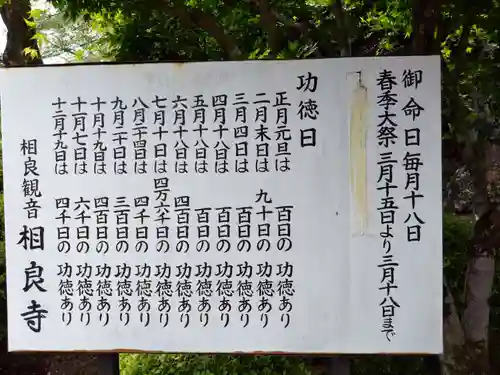 御命日 毎月十八日
春季大祭 三月十五日より三月十八日まで
功徳日
正月元旦は 百日の 功徳あり
二月末日は 九十日の 功徳あり
三月四日は 百日の 功徳あり
四月十八日は 百日の 功徳あり
五月十八日は 百日の 功徳あり
六月十八日は 四百日の 功徳あり
七月十日は 四万六千日の 功徳あり
八月二十四日は 四千日の 功徳あり
九月二十日は 三百日の 功徳あり
十月十九日は 四百日の 功徳あり
十一月七日は 六千日の 功徳あり
十二月十九日は 四千日の 功徳あり
相良観音 相良寺